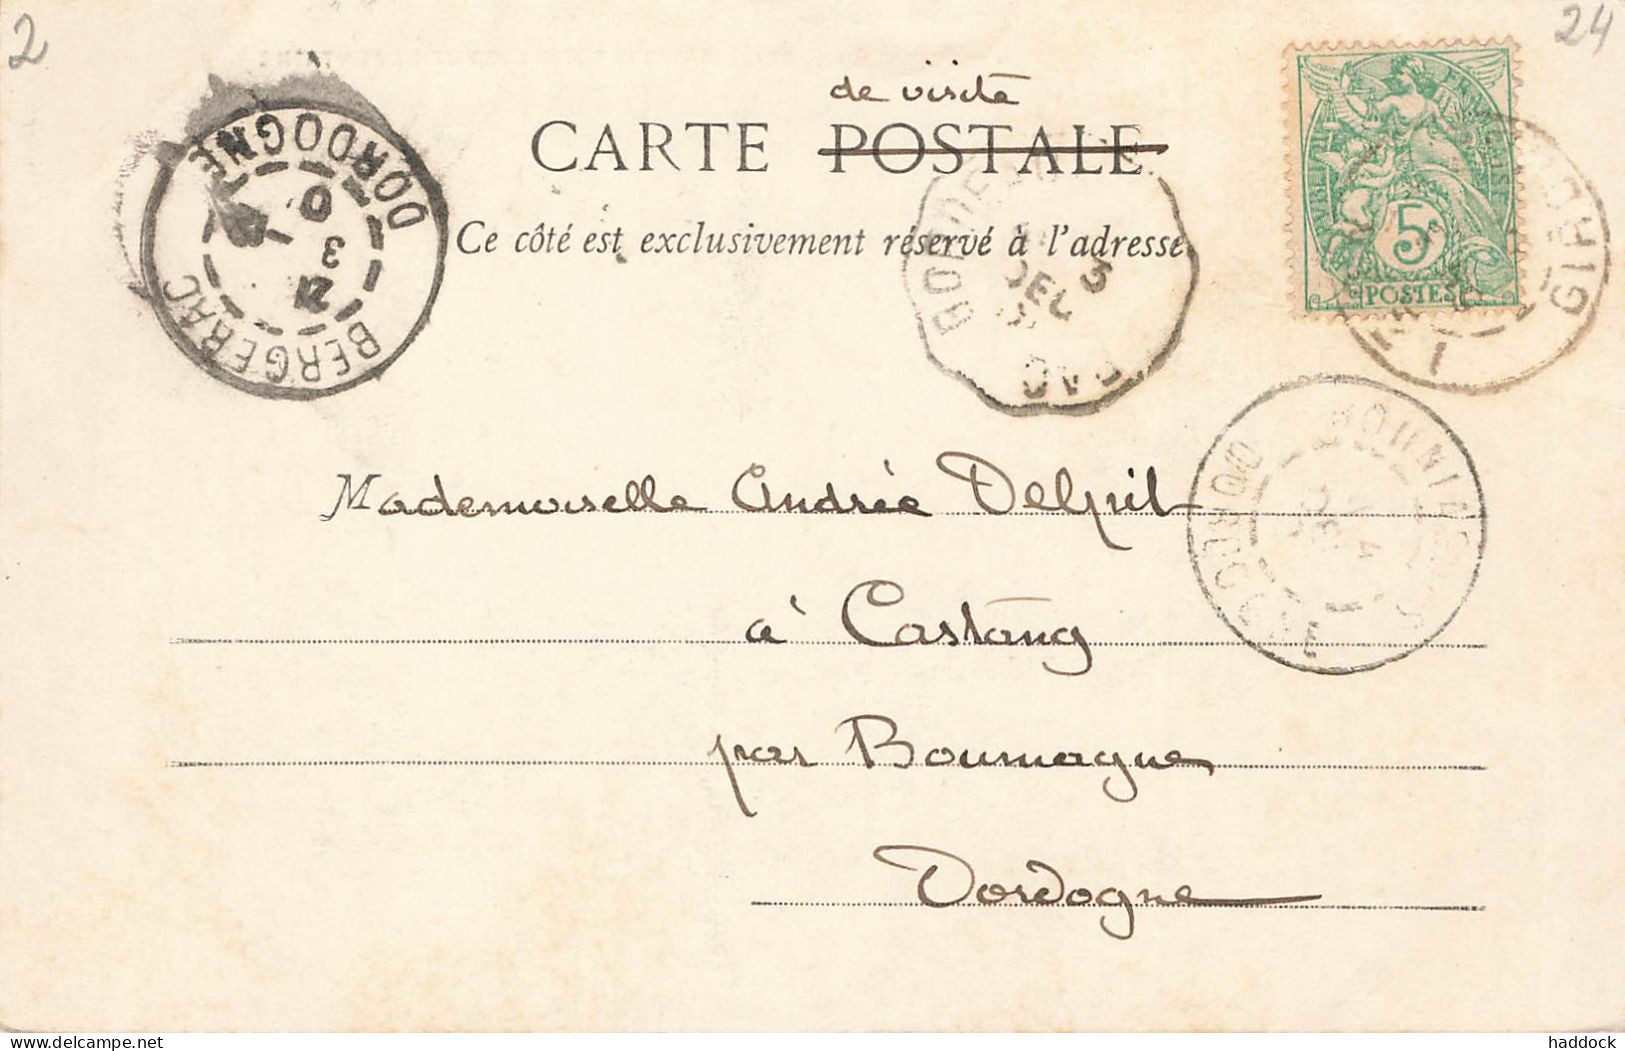 2
24
de visite
CARTE POSTALE
Ce côté est exclusivement réservé à l'adresse
BERGERAC DORDOGNE
3
DEL
5c
POSTES
Mademoiselle Andrée Delpit
à Castang
par Bournagne
Dordogne
delcampe.net
haddock